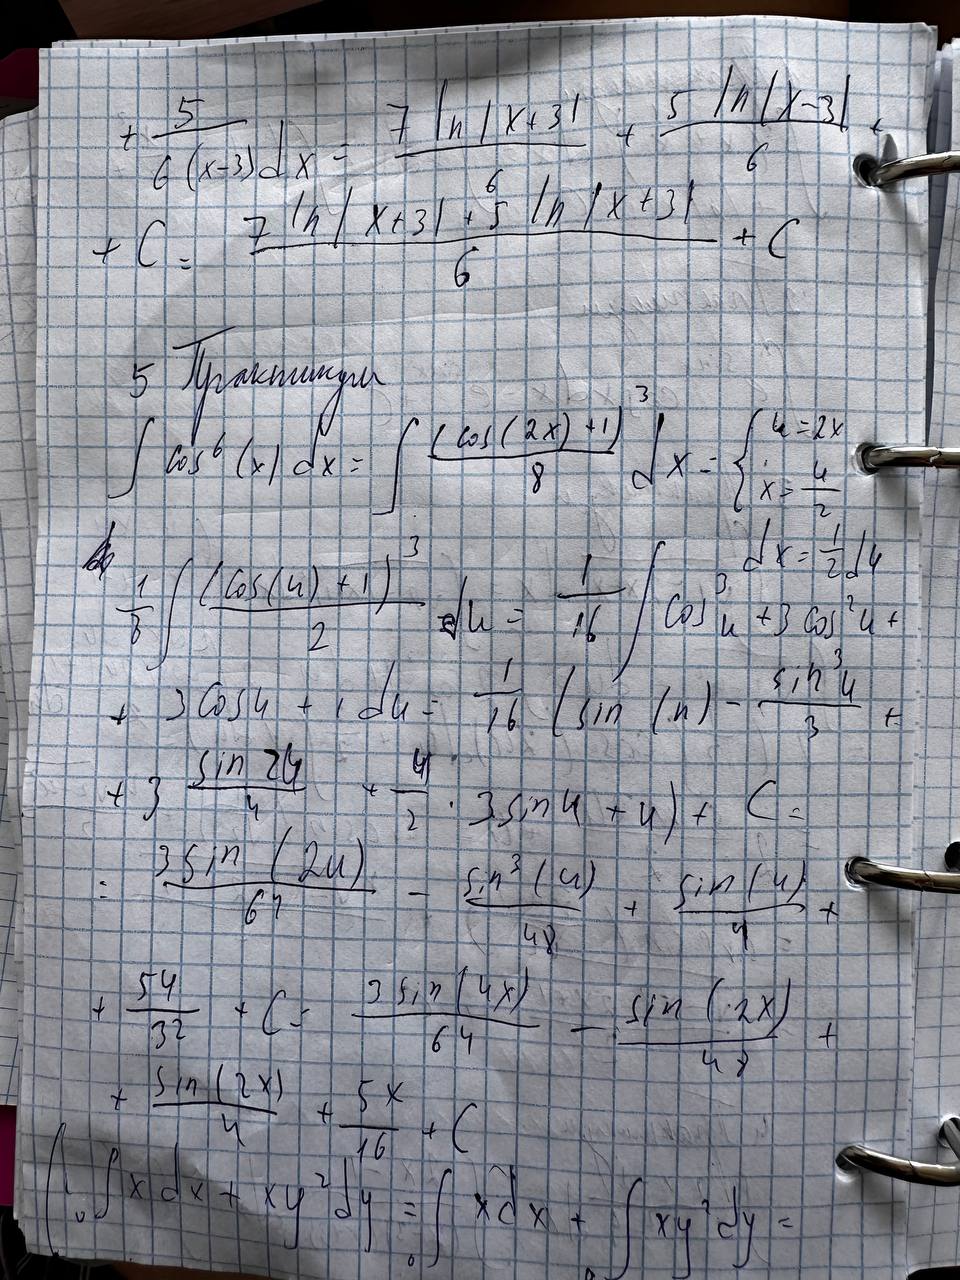 + 5/(6(x-3)) dx = 7 ln|x+3|/6 + 5 ln|x-3|/6 +
+ C = (7 ln|x+3| + 5 ln|x+3|)/6 + C
5 Практикум
∫ cos⁶(x) dx = ∫ (cos(2x)+1)³/8 dx = { u = 2x
x = u/2
dx = 1/2 du
1/8 ∫ (cos(u)+1)³/2 du = 1/16 ∫ cos³u + 3cos²u +
+ 3cosu + 1 du = 1/16 (sin(u) - sin³u/3 +
+ 3 sin2u/4 + u/2 · 3sinu + u) + C =
= 3sin(2u)/64 - sin³(u)/48 + sin(u)/4 +
+ 5u/32 + C = 3sin(4x)/64 - sin(2x)/48 +
+ sin(2x)/4 + 5x/16 + C
∫ xdx + xy²dy = ∫ xdx + ∫ xy²dy =